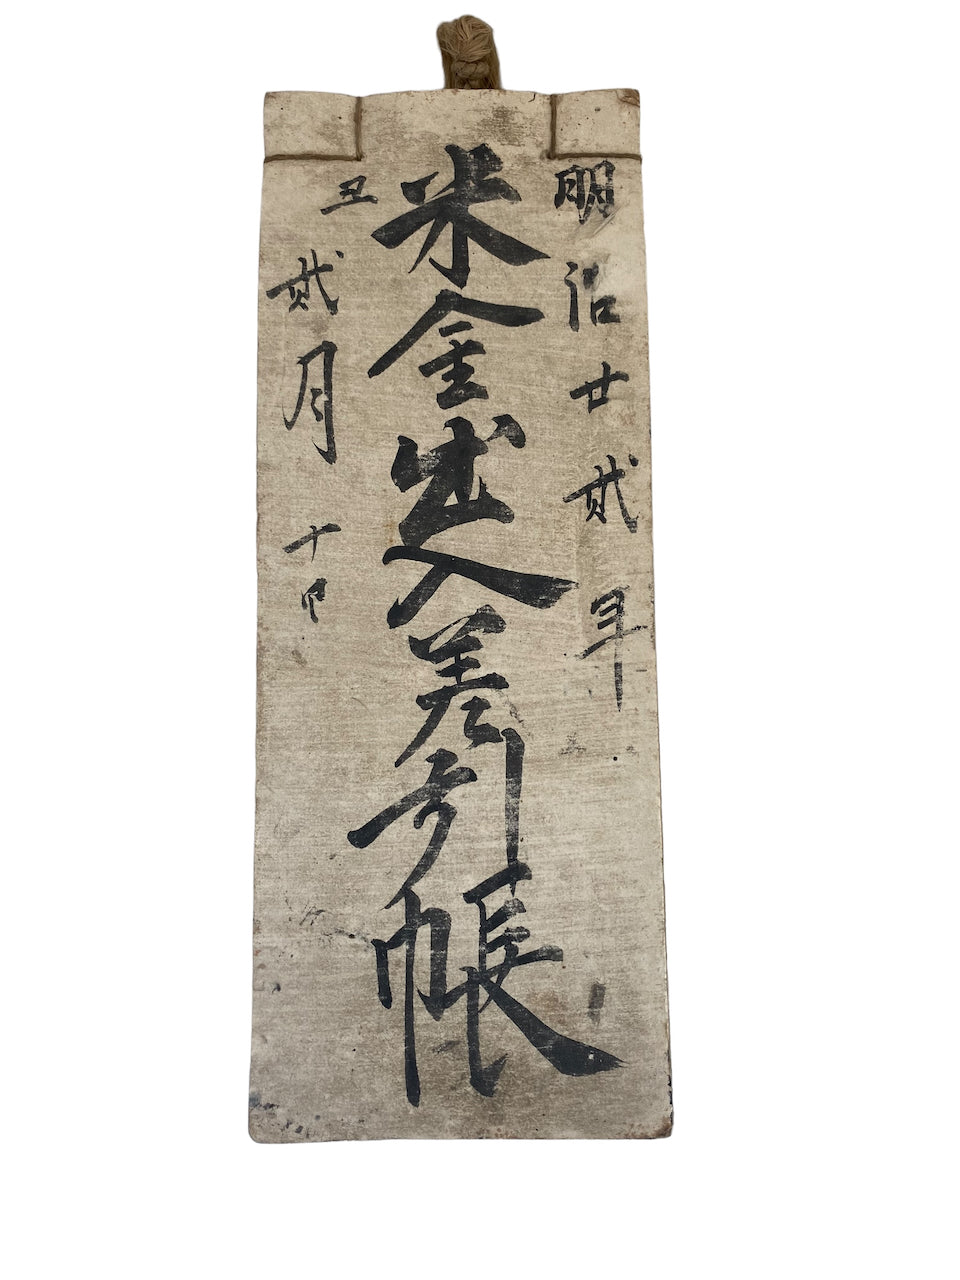 明治廿貳年
米金出入差引帳
丑貳月十日